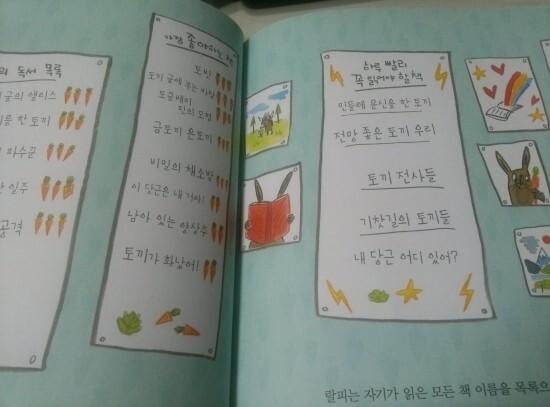 독서 목록
굴의 앨리스
한 토끼
파수꾼
일주
공격
가장 좋아하는 책
토빗
도끼 굴에 부는 바람
도글배미
밑의 모험
금토끼 은토끼
비밀의 채소밭
이 당근은 내 거야!
남아 있는 양상추
토끼가 화났어!
하루 빨리
꼭 읽어야 할 책
민들레 문신을 한 토끼
전망 좋은 토끼 우리
토끼 전사들
기찻길의 토끼들
내 당근 어디 있어?
랄피는 자기가 읽은 모든 책 이름을 목록으